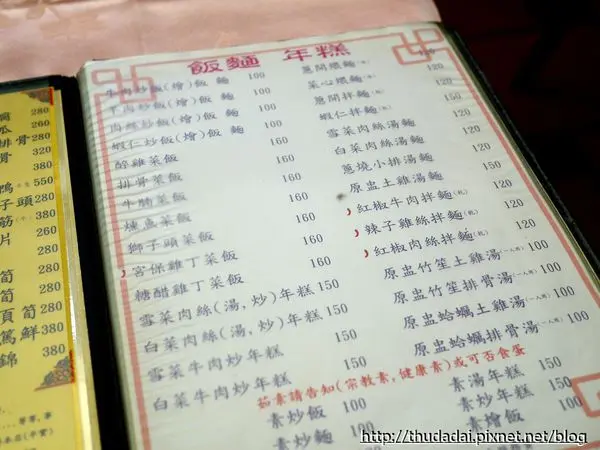 飯麵 年糕
牛肉炒飯(燴)飯 麵 100
牛肉炒飯(燴)飯 麵 100
肉絲炒飯(燴)飯 麵 100
蝦仁炒飯(燴)飯 麵 100
醉雞菜飯 160
排骨菜飯 160
牛腩菜飯 160
燻魚菜飯 160
獅子頭菜飯 160
宮保雞丁菜飯 160
糖醋雞丁菜飯 160
雪菜肉絲(湯,炒)年糕 150
白菜肉絲(湯,炒)年糕 150
雪菜牛肉炒年糕 150
白菜牛肉炒年糕 150
蔥開煨麵 120
菜心煨麵 120
蔥開拌麵 120
蝦仁拌麵 150
雪菜肉絲湯麵 120
白菜肉絲湯麵 120
蔥燒小排湯麵 120
原盅土雞湯麵 150
紅椒牛肉拌麵(乾) 120
辣子雞絲拌麵(乾) 120
紅椒肉絲拌麵(乾) 120
原盅竹笙土雞湯(一人用) 100
原盅竹笙排骨湯(一人用) 100
原盅蛤蠣土雞湯(一人用) 100
原盅蛤蠣排骨湯(一人用) 100
茹素請告知(宗教素,健康素)或可否食蛋
素炒飯 100
素炒麵 100
素湯年糕 150
素炒年糕 150
素燴飯 100
280
瓜 280
排骨 320
骨 380
鴨 550
子頭 380
筋 380
片 260
280
筍 280
筍 280
頁筍 280
篤鮮 380
錦 380
http://thudadai.pixnet.net/blog